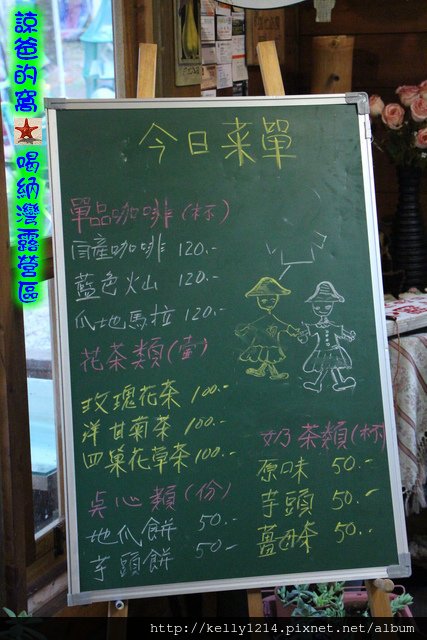 諒爸的窩
喝納灣露營區
今日菜單
單品咖啡(杯)
國產咖啡 120.-
藍色火山 120.-
爪地馬拉 120.-
花茶類(壺)
玫瑰花茶 100.-
洋甘菊茶 100.-
四巢花草茶 100.-
奶茶類(杯)
原口味 50.-
芋頭 50.-
薑母茶 50.-
點心類(份)
地瓜餅 50.-
芋頭餅 50.-
http://kelly1214.pixnet.net/album